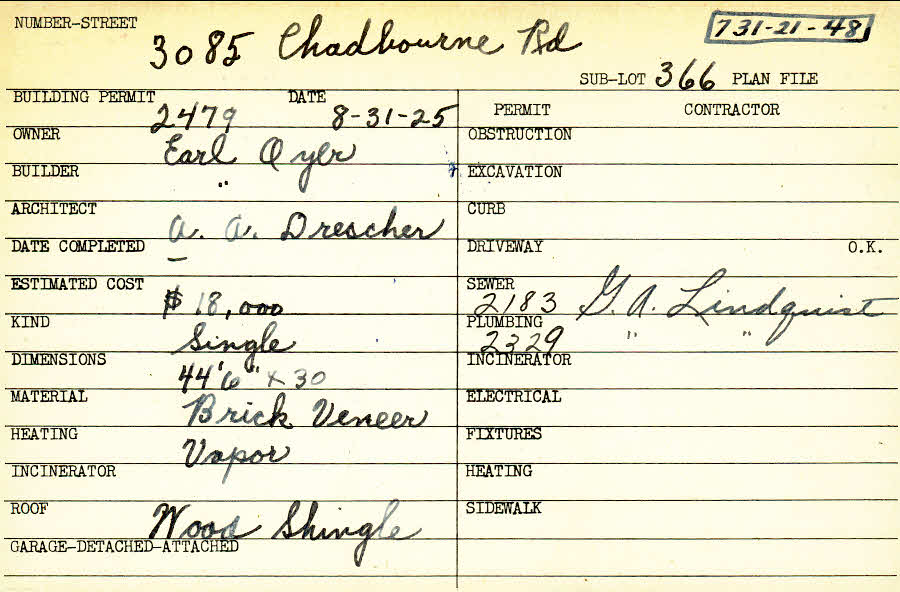 NUMBER-STREET 3085 Chadbourne Rd 731-21-48
SUB-LOT 366 PLAN FILE
BUILDING PERMIT 2479 DATE 8-31-25
PERMIT CONTRACTOR
OWNER Earl Oyler
OBSTRUCTION
BUILDER "
EXCAVATION
ARCHITECT A. A. Drescher
CURB
DATE COMPLETED –
DRIVEWAY O.K.
ESTIMATED COST $ 18,000
SEWER 2183 G. A. Lindquist
KIND Single
PLUMBING 2329 " "
DIMENSIONS 44'6" x 30
INCINERATOR
MATERIAL Brick Veneer
ELECTRICAL
HEATING Vapor
FIXTURES
INCINERATOR
HEATING
ROOF Wood Shingle
SIDEWALK
GARAGE-DETACHED-ATTACHED